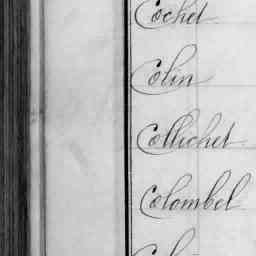 Cochet
Colin
Collichet
Colombel